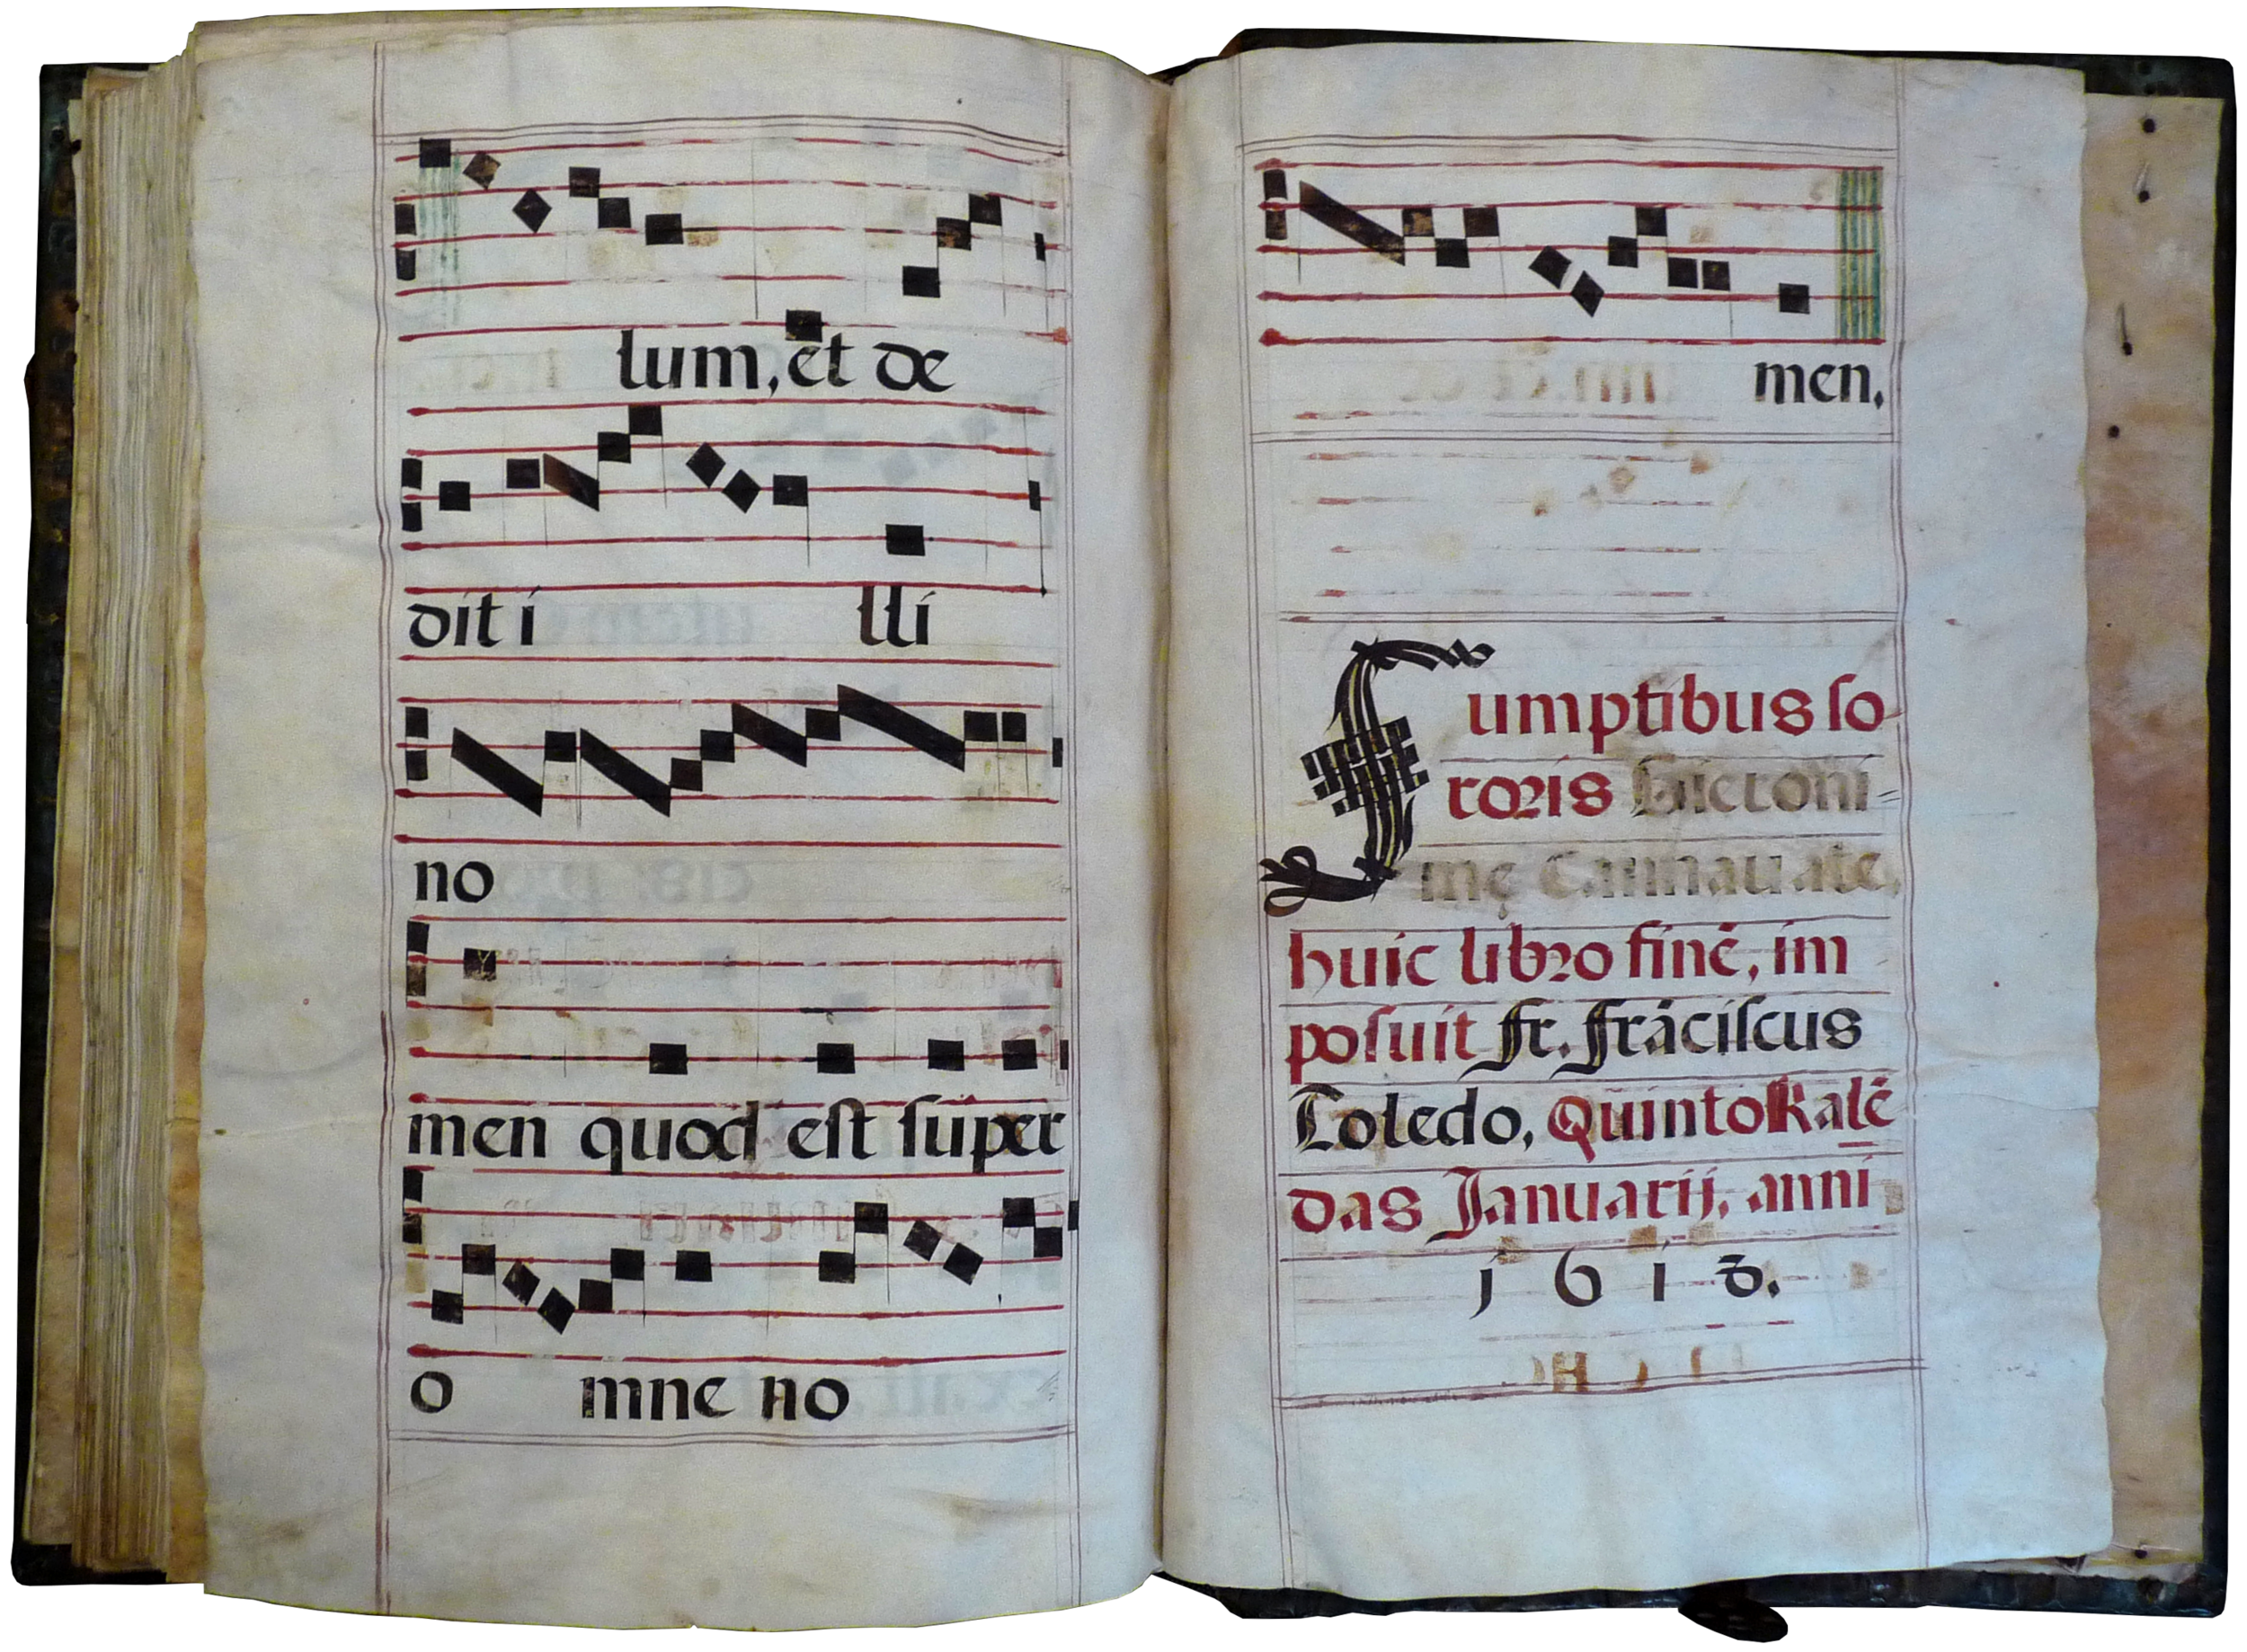 lum, et de
dit i lli
no
men quod est super
o mne no
men.
Sumptibus so
roris Hieroni
mę Cannauate,
huic libro finē, im
posuit fr. frāciscus
Toledo, Quinto Kalē
das Januarij, anni